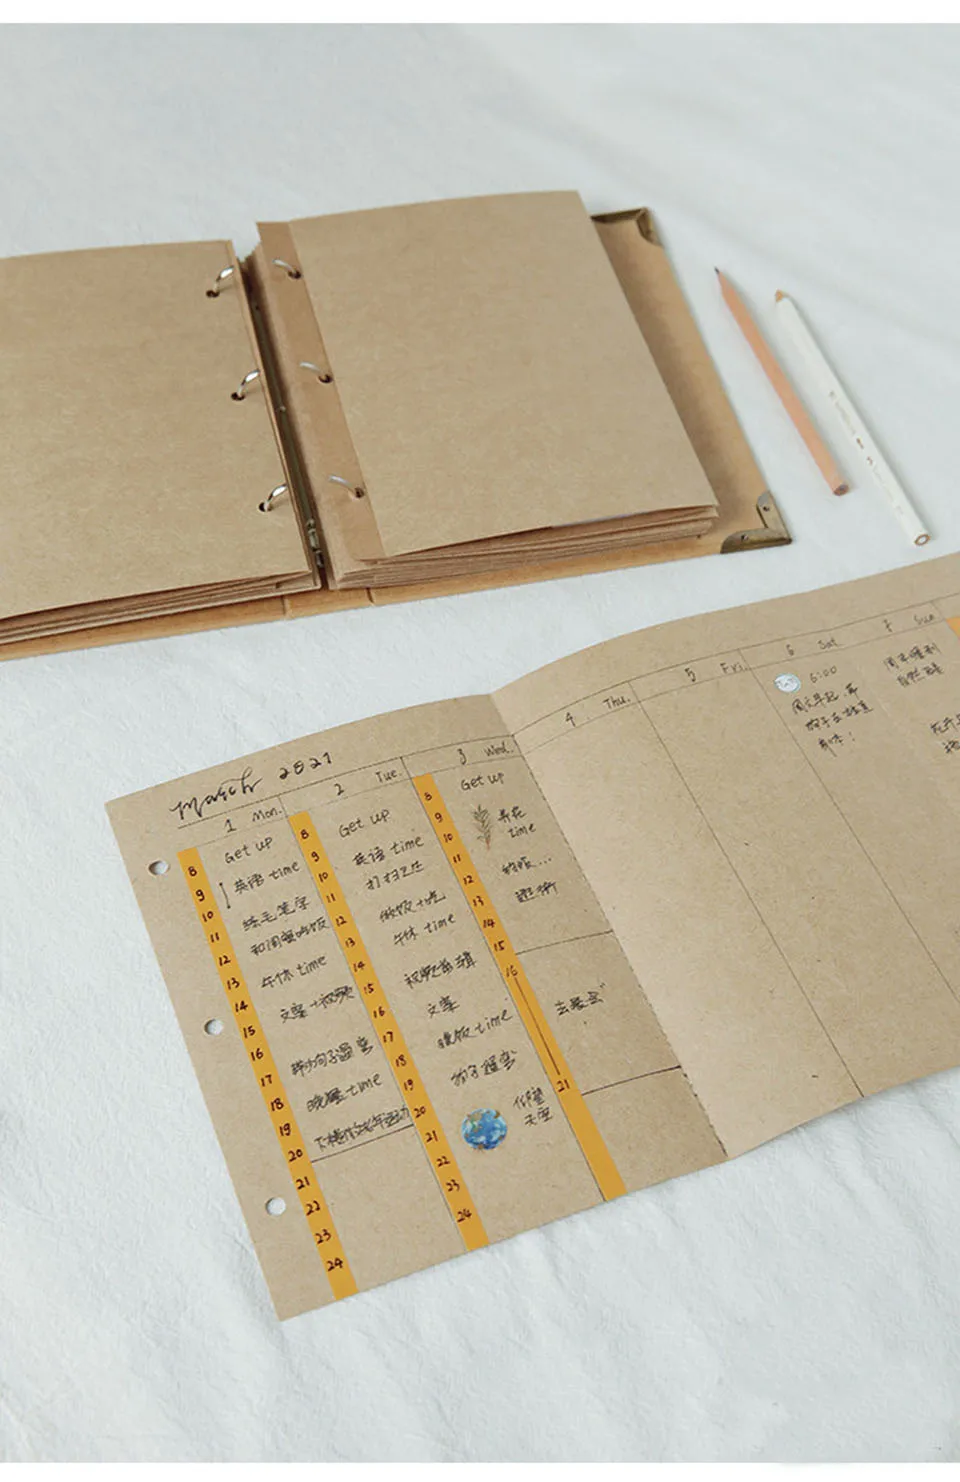 March 2021
1 Mon.
8
9
10
11
12
13
14
15
16
17
18
19
20
21
22
23
24
Get up
英语 time
练毛笔字
和闺蜜吃饭
午休 time
文案+视频
晚餐 time
2 Tue.
8
9
10
11
12
13
14
15
16
17
18
19
20
21
22
23
24
Get up
英语 time
打扫卫生
做饭+吃
午休 time
视频剪辑
文案
晚饭 time
狗子遛弯
仰望
天空
3 Wed.
8
9
10
11
12
13
14
15
16
21
Get up
time
约饭...
逛街
4 Thu.
5 Fri.
6 Sat.
6:00
周六早起，带
狗子去
7 Sun.